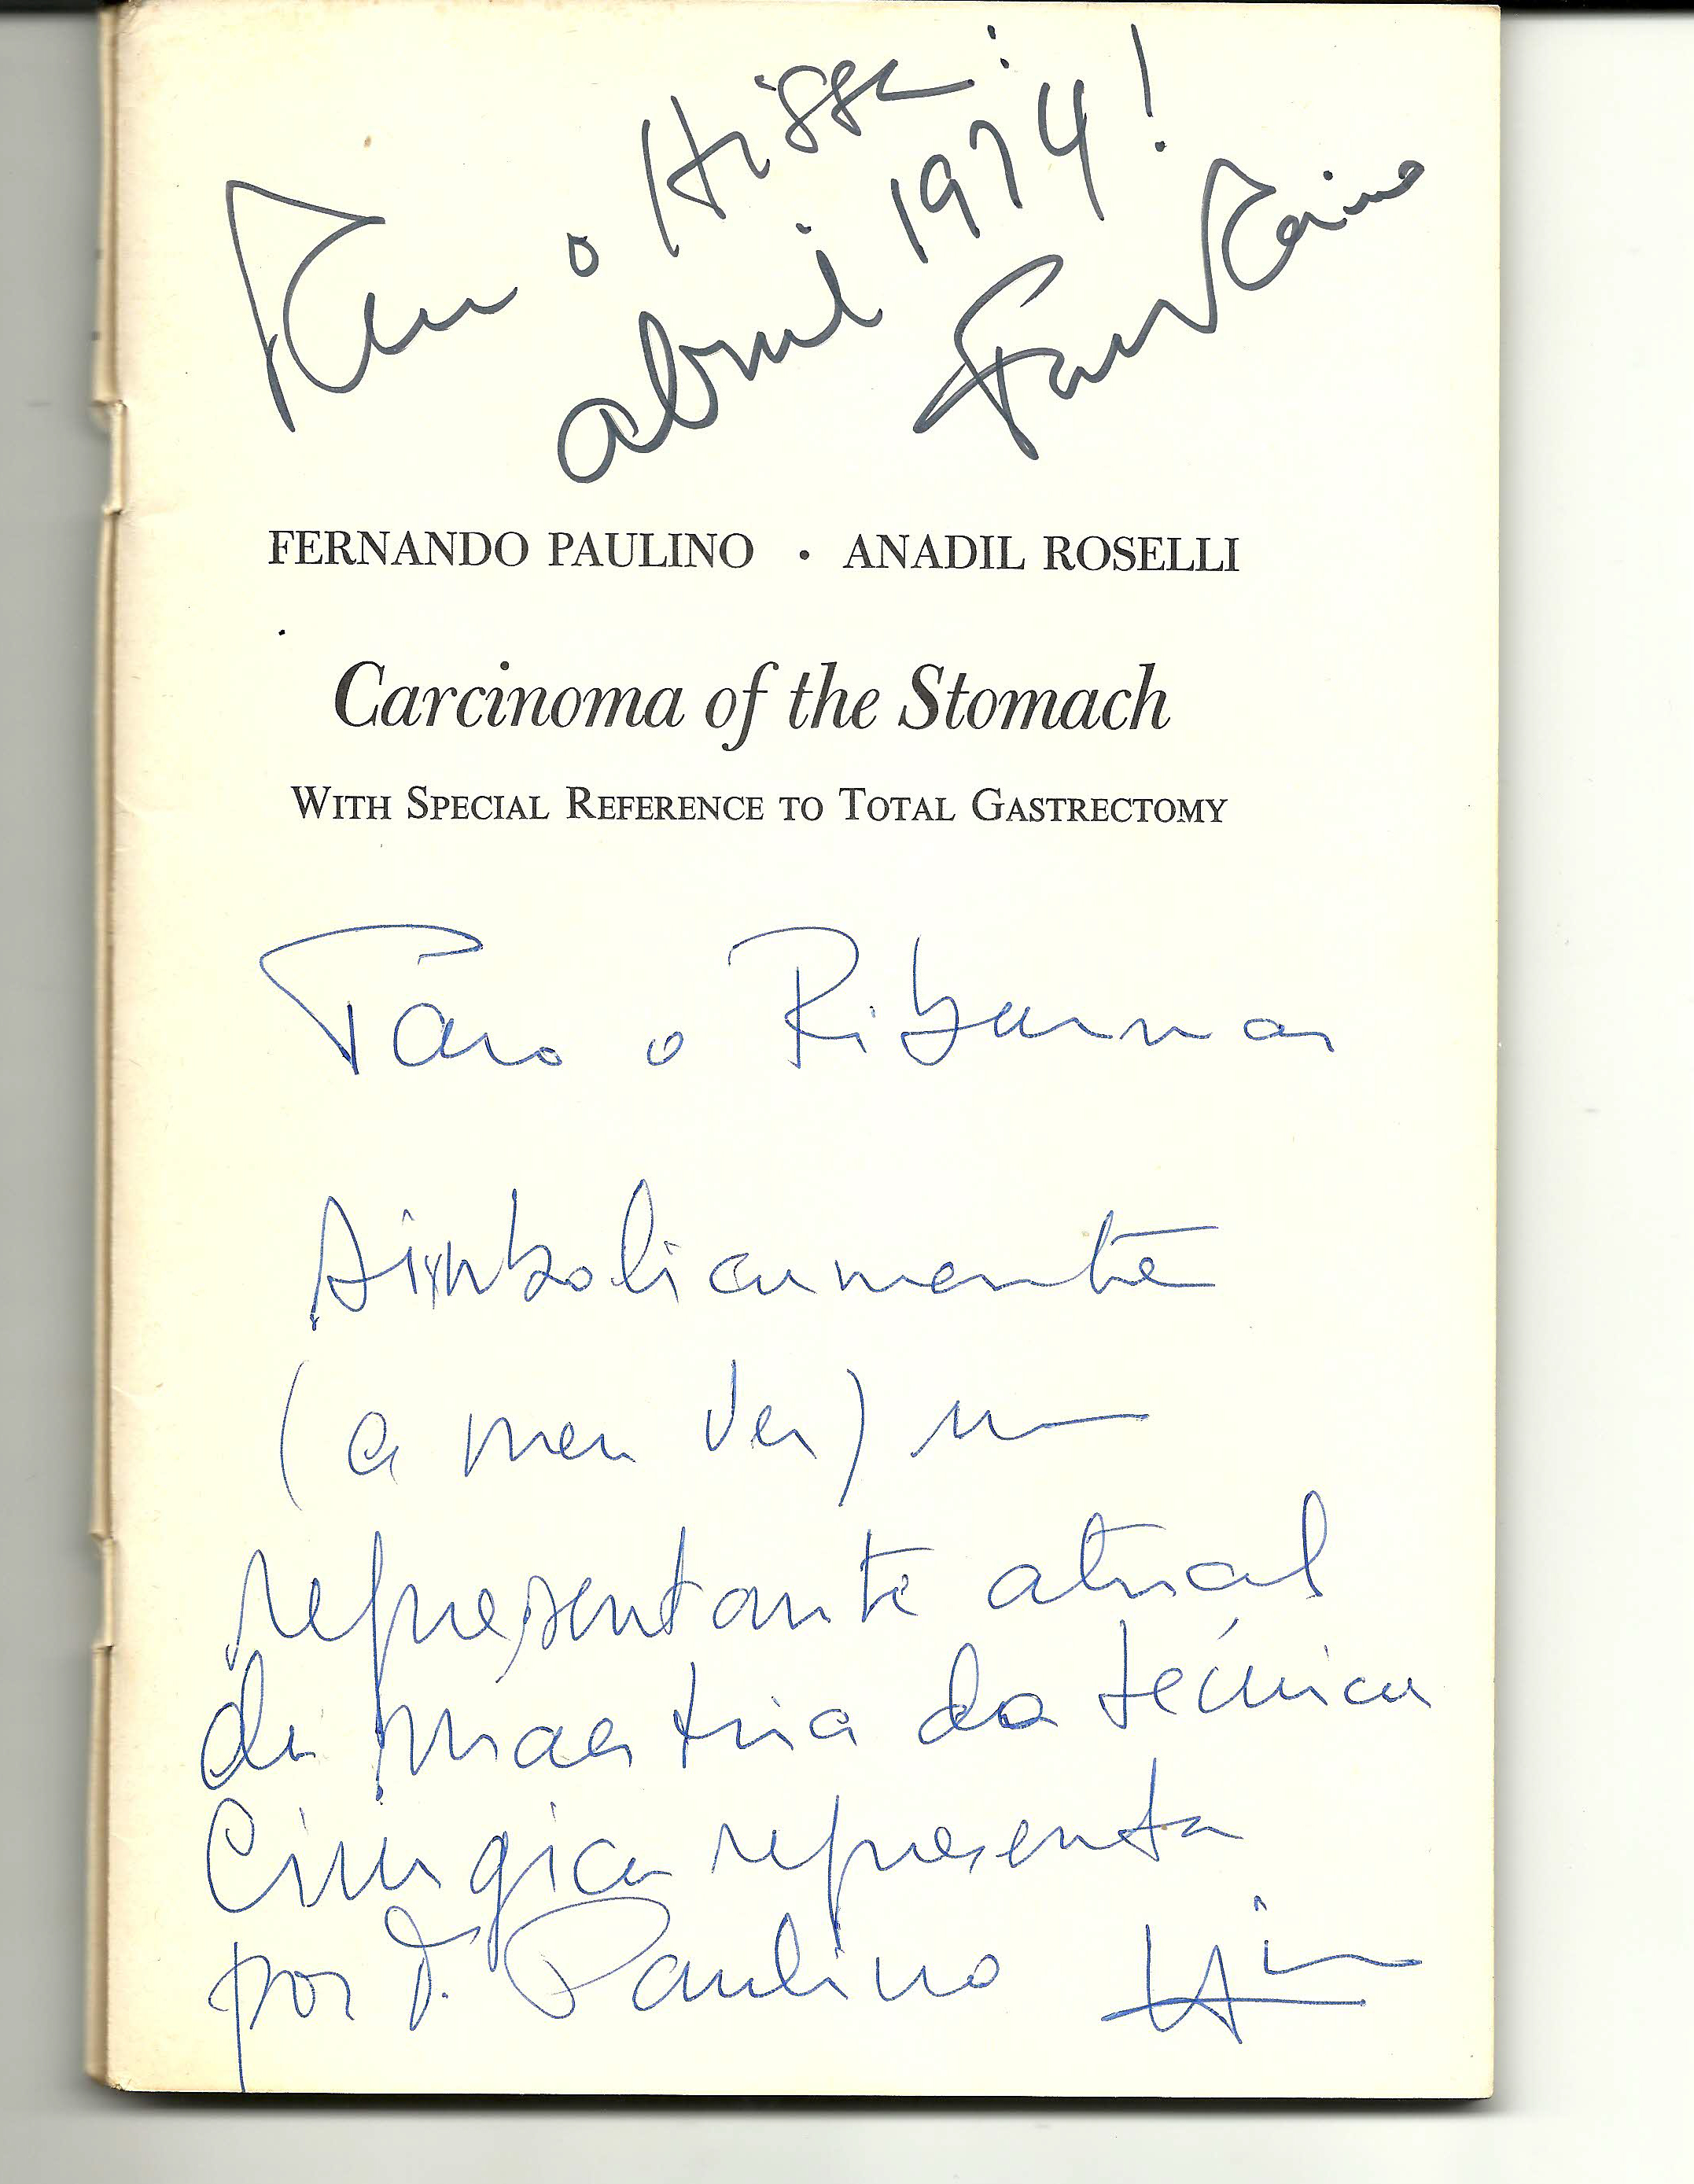 Para o Hissa:
abril 1974!
FERNANDO PAULINO • ANADIL ROSELLI
Carcinoma of the Stomach
WITH SPECIAL REFERENCE TO TOTAL GASTRECTOMY
Para o Ribamar
Simbolicamente
(a meu ver) um
representante atual
da maestria da técnica
Cirurgica representa
por D. Paulino